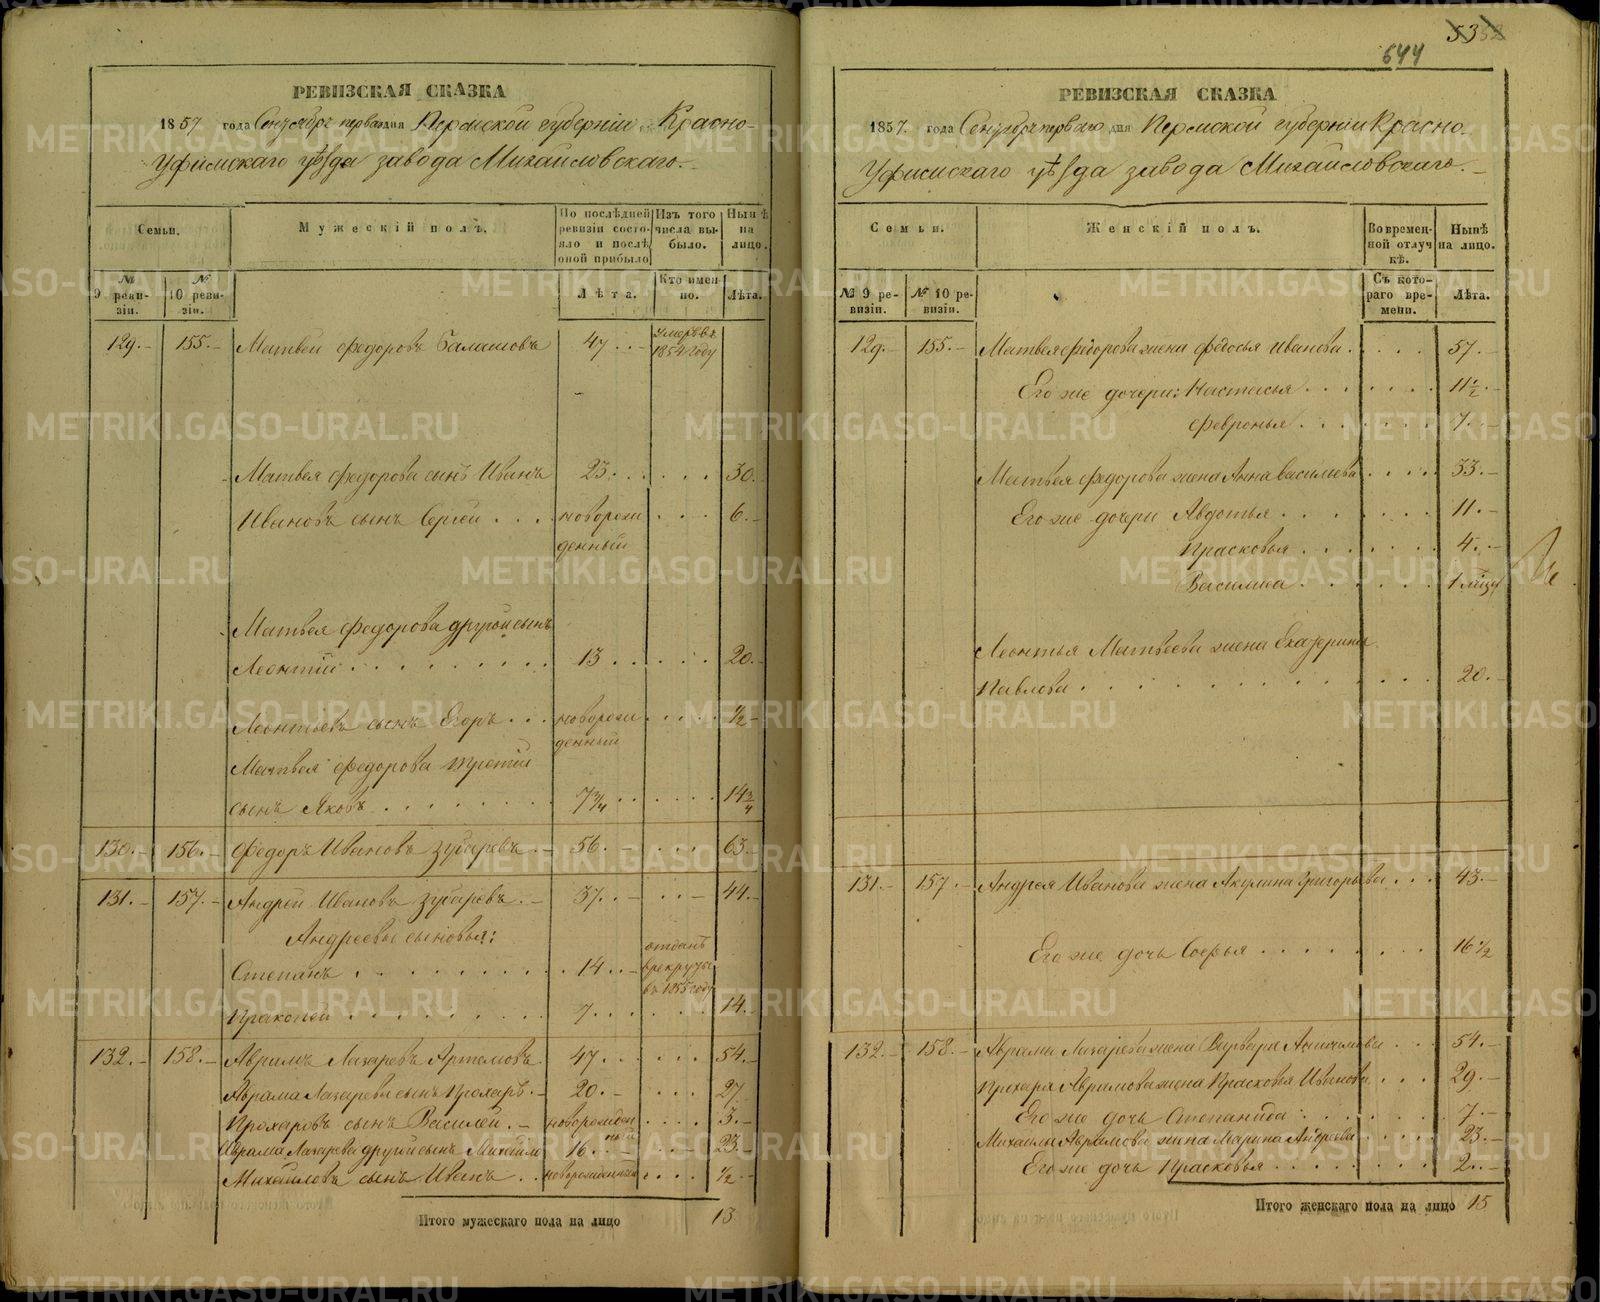 РЕВИЗСКАЯ СКАЗКА
1857 года Сентября перваго дня Пермской губерніи Красно-
Уфимскаго уѣзда завода Михайловскаго.
Семьи.
Мужескій полъ.
По послѣдней ревизіи состояло и послѣ оной прибыло
Изъ того числа выбыло.
Нынѣ на лицо.
№ 9 ревизіи.
№ 10 ревизіи.
Лѣта.
Кто именно.
Лѣта.
129. 155. Матвей Федоровъ Балашовъ 47 умеръ въ 1854 году
Матвея Федорова сынъ Иванъ 23 30.
Ивановъ сынъ Сергей новорожденный 6.
Матвея Федорова другой сынъ
Леонтій 13 20.
Леонтьевъ сынъ Егоръ новорожденный 1/2
Матвея Федорова третій
сынъ Яковъ 7 3/4 14 3/4
130. 156. Федоръ Ивановъ Зубаревъ 56. 63.
131. 157. Андрей Ивановъ Зубаревъ 37. 44.
Андреевы сыновья:
Степанъ 14 отданъ в рекруты въ 1855 году
Пракопей 7. 14.
132. 158. Аврамъ Лазаревъ Артемовъ 47 54.
Аврама Лазарева сынъ Прохаръ 20. 27
Прохаровъ сынъ Василей новорожденный 3.
Аврама Лазарева другой сынъ Михайло 16 23.
Михайловъ сынъ Иванъ новорожденный 1/2
Итого мужескаго пола на лицо 13
53 52
644
РЕВИЗСКАЯ СКАЗКА
1857. года Сентября перваго дня Пермской губерніи Красно-
Уфимскаго уѣзда завода Михайловскаго.
Семьи.
Женскій полъ.
Во временной отлучкѣ.
Нынѣ на лицо.
№ 9 ревизіи.
№ 10 ревизіи.
Съ котораго времени.
Лѣта.
129. 155. Матвея Федорова жена Федосья Иванова 57.
Его же дочери: Настасья 11 1/2
Февронья 7.
Матвея Федорова жена Анна Васильева 33.
Его же дочери Авдотья 11.
Прасковья 4.
Василиса 1 мѣсяц
Леонтья Матвеева жена Екатерина
Павлова 20.
131. 157. Андрея Иванова жена Акулина Григорьева 43.
Его же дочь Софья 16 1/2
132. 158. Аврама Лазарева жена Варвара 54.
Прохара Аврамова жена Прасковья Иванова 29.
Его же дочь Степанида 7.
Михайлы Аврамова жена Марина Андреева 23.
Его же дочь Прасковья 2.
Итого женскаго пола на лицо 15
METRIKI.GASO-URAL.RU